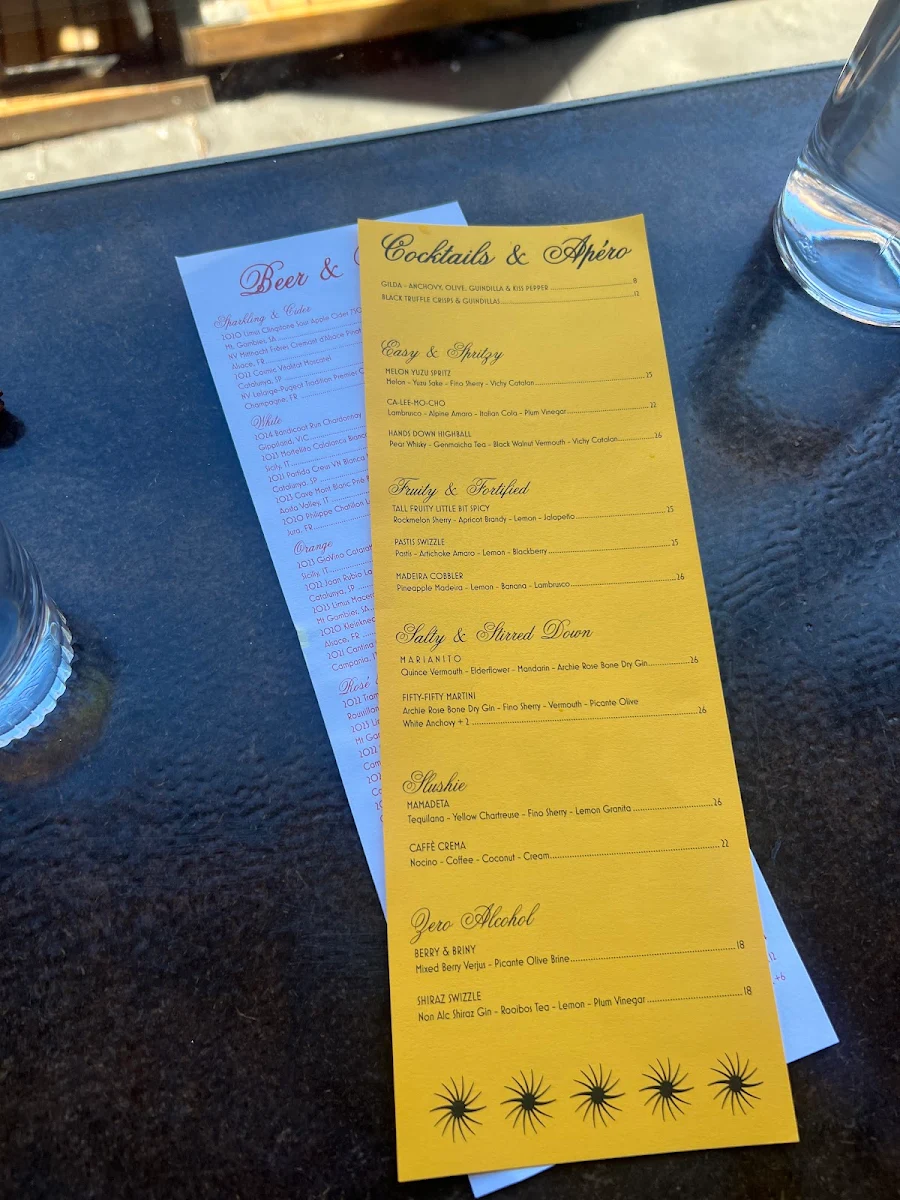 Beer &
Sparkling & Cider
Mt. Gambier, SA
Alsace, FR
2022 Cosmic Vitalitat Moscatel
Catalunya, SP
NV Lelarge-Pugeot Tradition Premier
Champagne, FR
White
2024 Bandicoot Run Chardonnay
Gippsland, VIC
Sicily, IT
2021 Partida Creus VN Blanco
Catalunya, SP
2023 Cave Mont Blanc
Aosta Valley, IT
2020 Philippe Chatillon
Jura, FR
Orange
2023 GioVino
Sicily, IT
2022 Joan Rubio
Catalunya, SP
2023 Limus
Mt Gambier, SA
2020
Alsace, FR
2021 Cantina
Campania,
Rosé
2022
2023
Mt
2022
Cocktails & Apéro
GILDA - ANCHOVY, OLIVE, GUINDILLA & KISS PEPPER 8
BLACK TRUFFLE CRISPS & GUINDILLAS 12
Easy & Spritzy
MELON YUZU SPRITZ
Melon - Yuzu Sake - Fino Sherry - Vichy Catalan 25
CA-LEE-MO-CHO
Lambrusco - Alpine Amaro - Italian Cola - Plum Vinegar 22
HANDS DOWN HIGHBALL
Pear Whisky - Genmaicha Tea - Black Walnut Vermouth - Vichy Catalan 26
Fruity & Fortified
TALL FRUITY LITTLE BIT SPICY
Rockmelon Sherry - Apricot Brandy - Lemon - Jalapeño 25
PASTIS SWIZZLE
Pastis - Artichoke Amaro - Lemon - Blackberry 25
MADEIRA COBBLER
Pineapple Madeira - Lemon - Banana - Lambrusco 26
Salty & Stirred Down
MARIANITO
Quince Vermouth - Elderflower - Mandarin - Archie Rose Bone Dry Gin 26
FIFTY-FIFTY MARTINI
Archie Rose Bone Dry Gin - Fino Sherry - Vermouth - Picante Olive
White Anchovy + 2 26
Slushie
MAMADETA
Tequilana - Yellow Chartreuse - Fino Sherry - Lemon Granita 26
CAFFÈ CREMA
Nocino - Coffee - Coconut - Cream 22
Zero Alcohol
BERRY & BRINY
Mixed Berry Verjus - Picante Olive Brine 18
SHIRAZ SWIZZLE
Non Alc Shiraz Gin - Rooibos Tea - Lemon - Plum Vinegar 18
12
+6